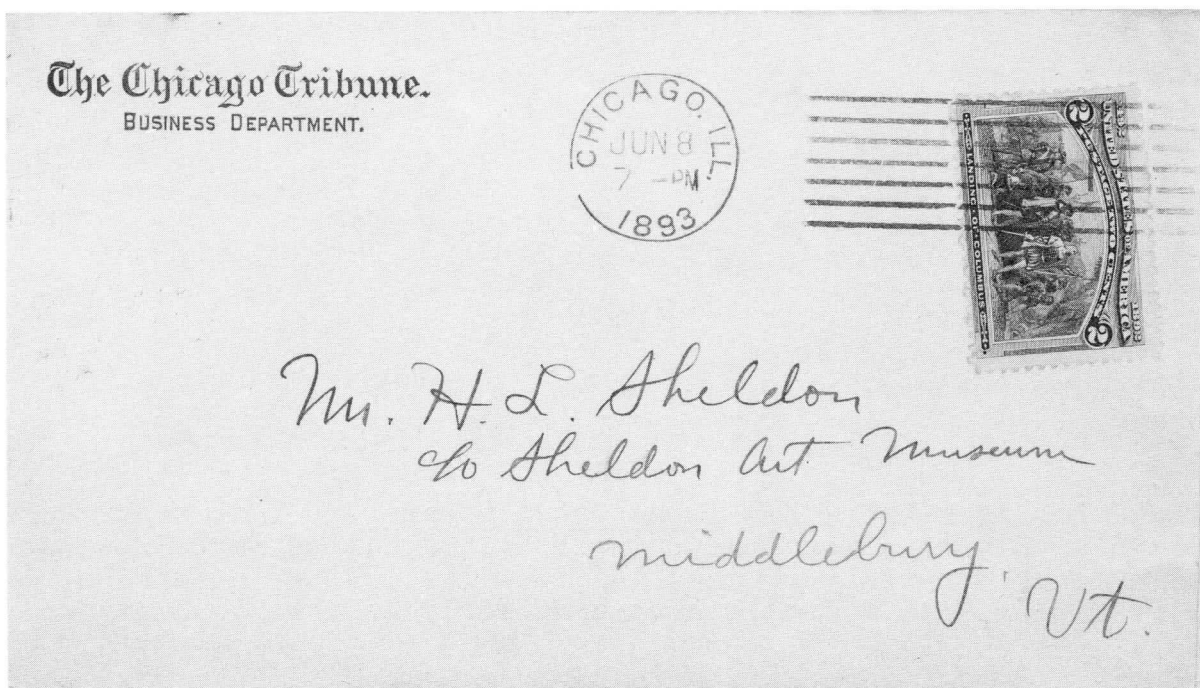 The Chicago Tribune.
BUSINESS DEPARTMENT.
CHICAGO, ILL.
JUN 8
7 -PM
1893
UNITED STATES OF AMERICA
2 2
LANDING OF COLUMBUS
Mr. H. L. Sheldon
c/o Sheldon Art Museum
Middlebury,
Vt.